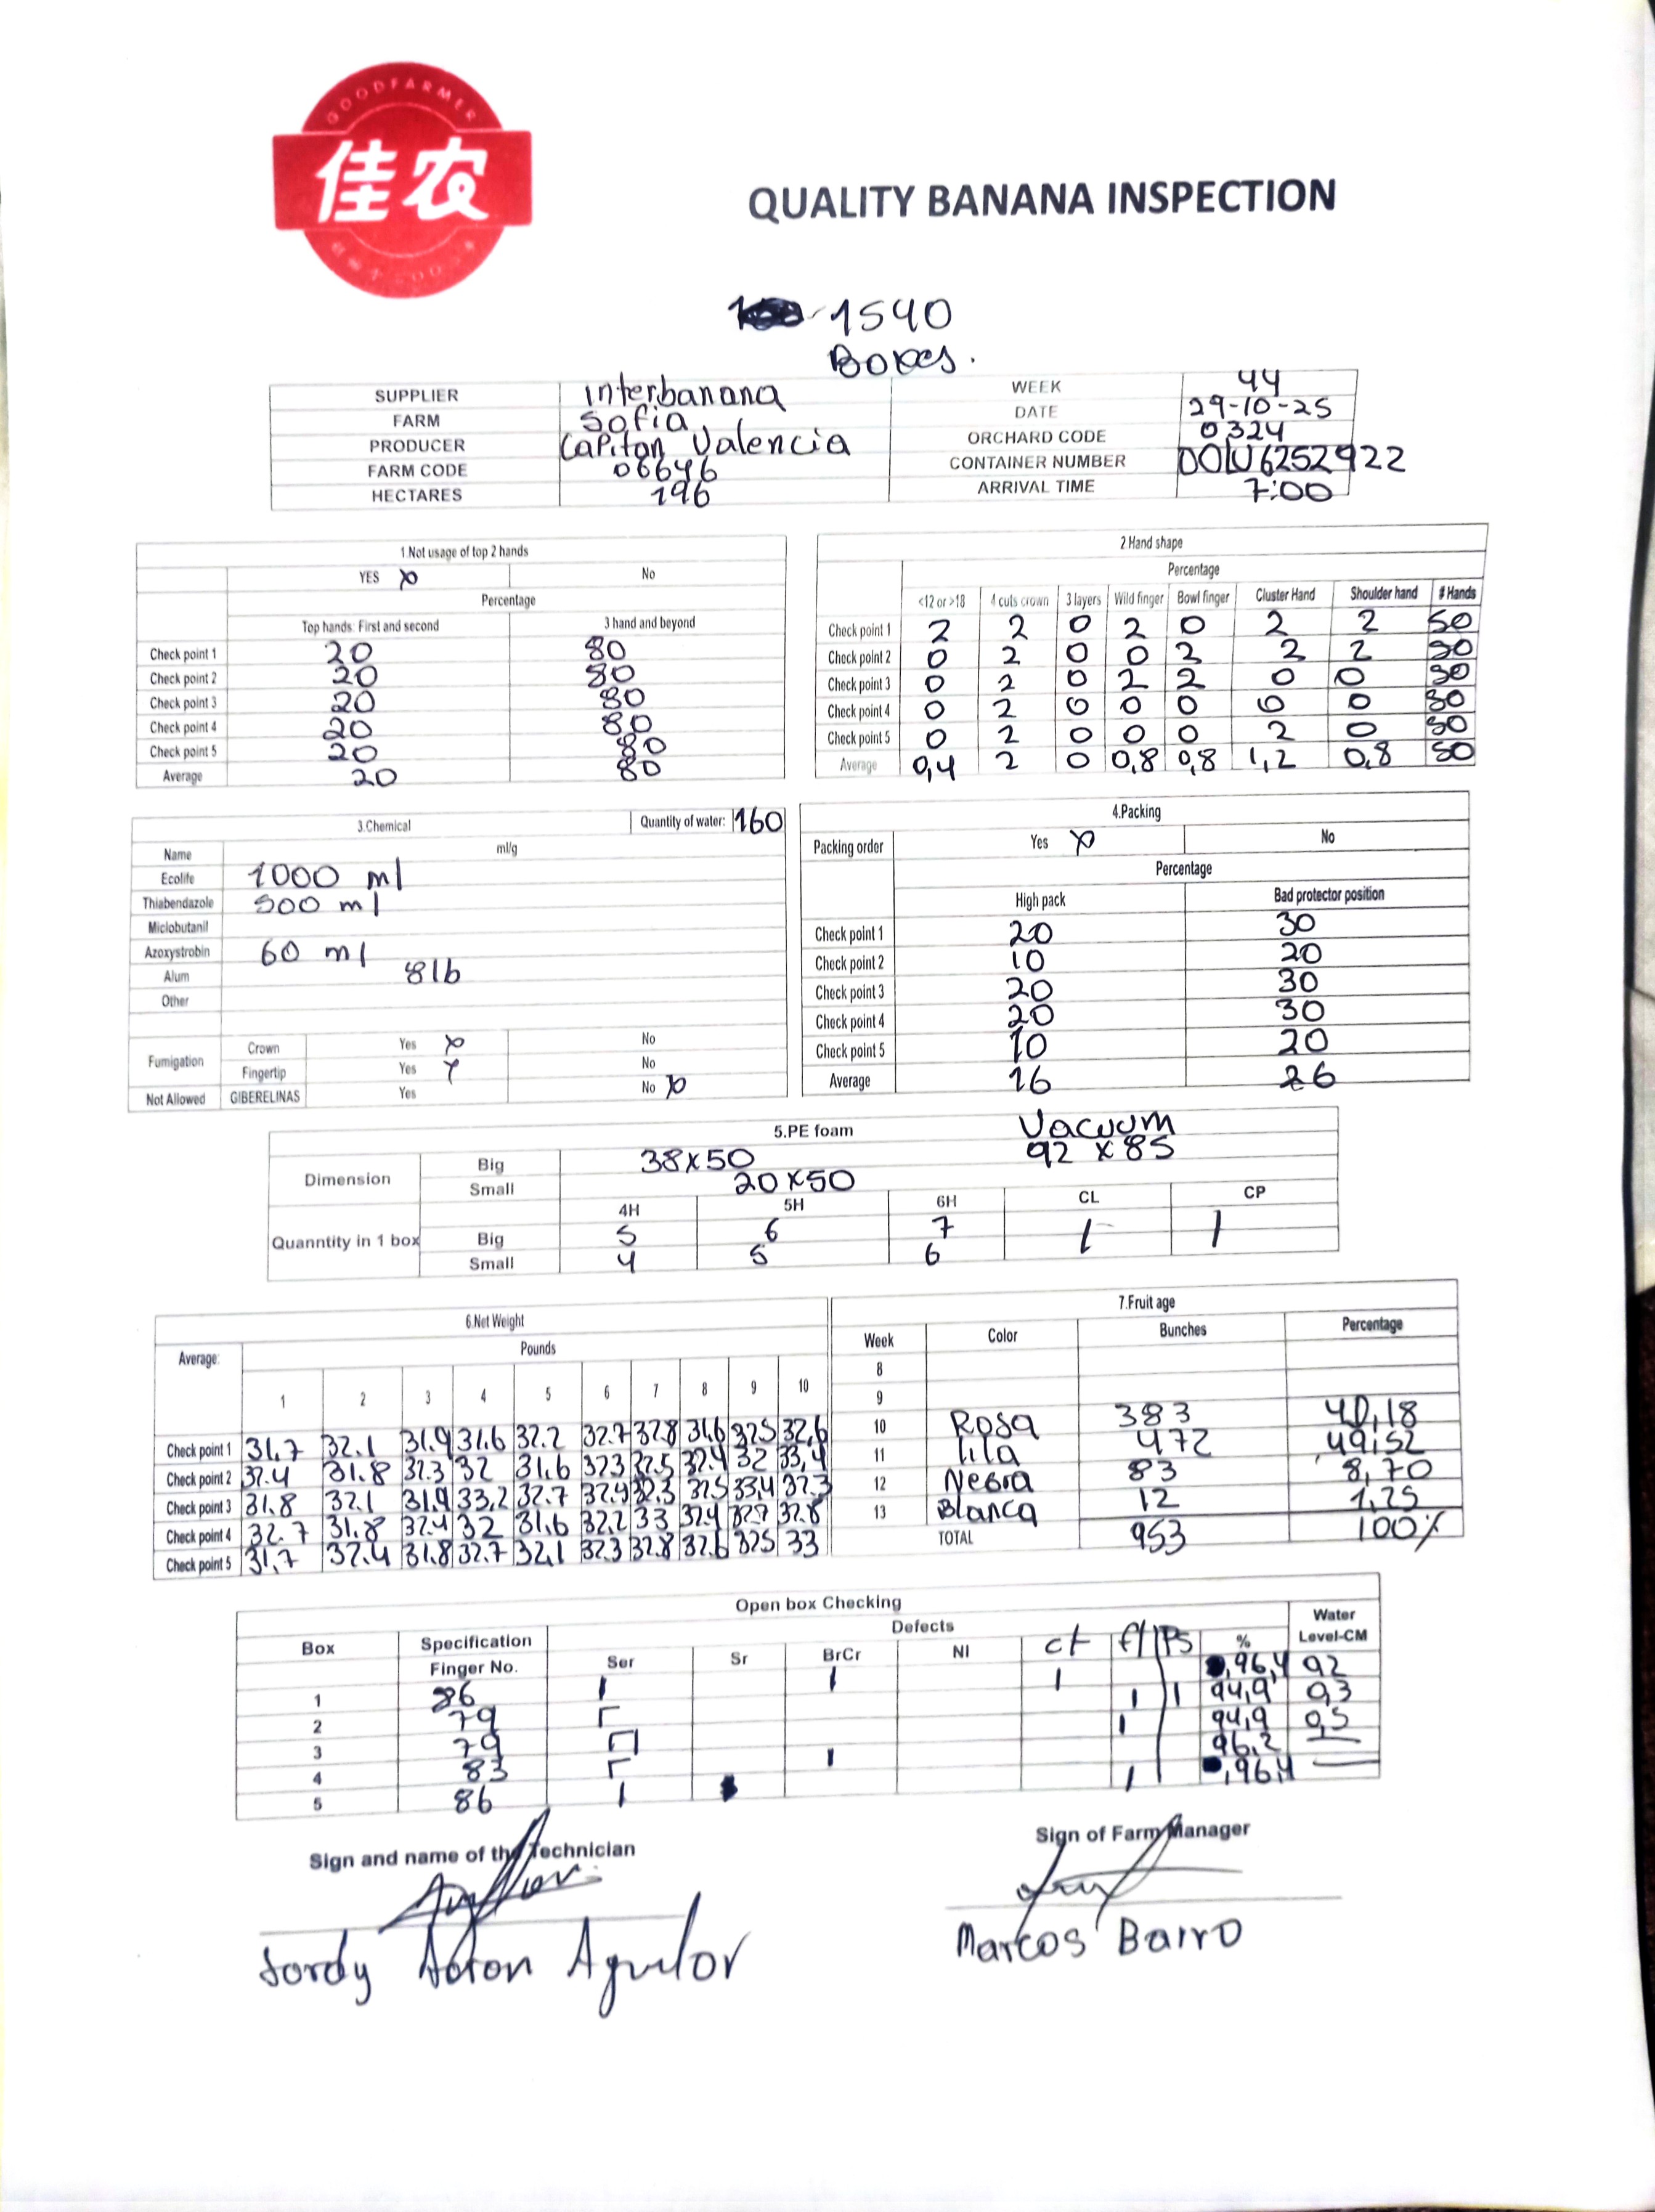 GOODFARMER
佳农
QUALITY BANANA INSPECTION
1540
Boxes.
SUPPLIER interbanana WEEK 44
FARM Sofia DATE 29-10-25
PRODUCER Capitan Valencia ORCHARD CODE 0324
FARM CODE 06646 CONTAINER NUMBER OOLU6252922
HECTARES 196 ARRIVAL TIME 7:00
1.Not usage of top 2 hands
YES x No
Percentage
Top hands: First and second 3 hand and beyond
Check point 1 20 80
Check point 2 20 80
Check point 3 20 80
Check point 4 20 80
Check point 5 20 80
Average 20 80
2.Hand shape
Percentage
<12 or >18 4 cuts crown 3 layers Wild finger Bowl finger Cluster Hand Shoulder hand # Hands
Check point 1 2 2 0 2 0 2 2 50
Check point 2 0 2 0 0 2 2 2 50
Check point 3 0 2 0 2 2 0 0 50
Check point 4 0 2 0 0 0 0 0 50
Check point 5 0 2 0 0 0 2 0 50
Average 0,4 2 0 0,8 0,8 1,2 0,8 50
3.Chemical Quantity of water: 160
Name ml/g
Ecolife 1000 ml
Thiabendazole 500 ml
Miclobutanil
Azoxystrobin 60 ml
Alum 8lb
Other
Fumigation Crown Yes x No
Fingertip Yes x No
Not Allowed GIBERELINAS Yes No x
4.Packing
Packing order Yes x No
Percentage
High pack Bad protector position
Check point 1 20 30
Check point 2 10 20
Check point 3 20 30
Check point 4 20 30
Check point 5 10 20
Average 16 26
5.PE foam Vacuum
Dimension Big 38x50 92 x 85
Small 20x50
4H 5H 6H CL CP
Quanntity in 1 box Big 5 6 7 1 1
Small 4 5 6
6.Net Weight
Average: Pounds
1 2 3 4 5 6 7 8 9 10
Check point 1 31,7 32.1 31.9 31.6 32.2 32.7 32.8 31,6 32.5 32,6
Check point 2 32.4 31.8 32.3 32 31.6 32.3 32.5 32.4 32 33,4
Check point 3 31.8 32.1 31.9 33,2 32.7 32.4 32.3 32.5 33,4 32.3
Check point 4 32.7 31.8 32.4 32 31.6 32,2 33 32.4 32.7 32.8
Check point 5 31,7 32.4 31.8 32.7 32,1 32.3 32.8 32.6 32.5 33
7.Fruit age
Week Color Bunches Percentage
8
9
10 Rosa 383 40,18
11 lila 472 49,52
12 Negra 83 8,70
13 Blanca 12 1,25
TOTAL 953 100%
Open box Checking
Box Specification Defects Water
Finger No. Ser Sr BrCr NI ct fl PS % Level-CM
1 86 1 1 1 96,4 92
2 79 1 1 94,9 0,3
3 79 1 94,9 0,5
4 83 1 96,2
5 86 1 1 96,4
Sign and name of the Technician
Sign of Farm Manager
Jordy Adrian Aguilar
Marcos Barro